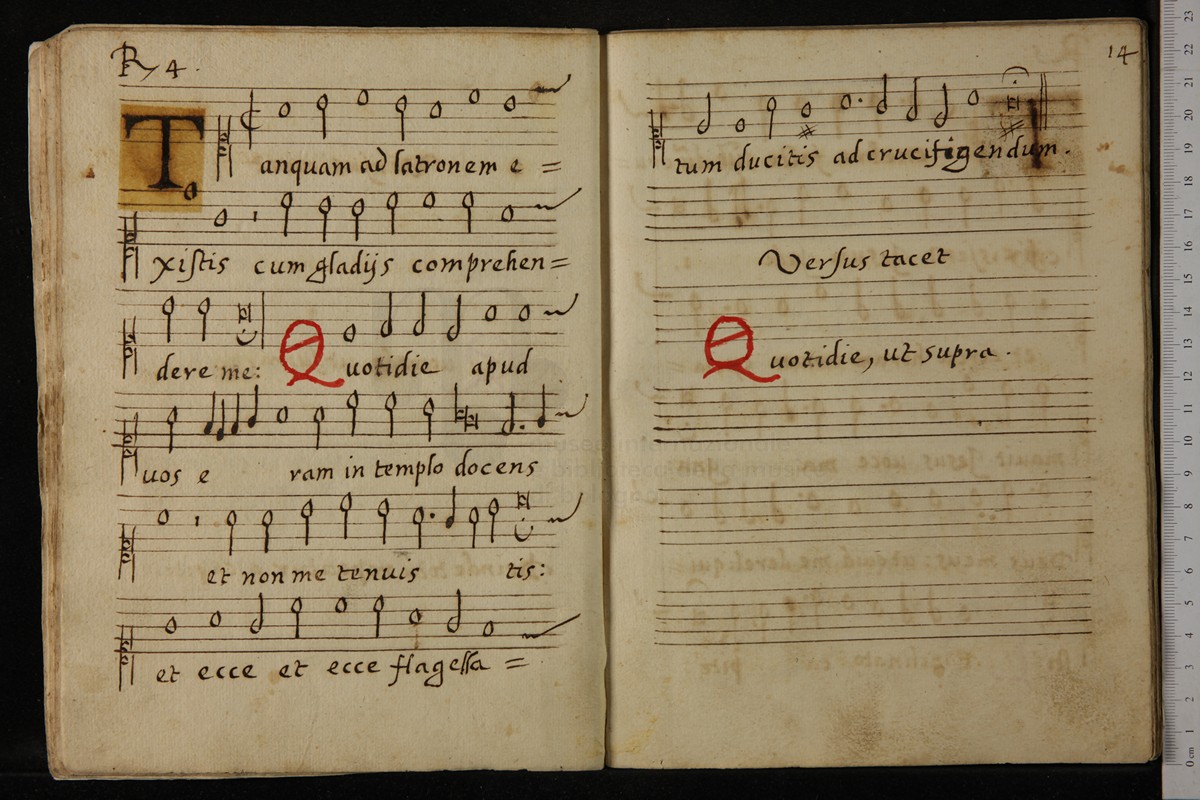 R/ 4.
Tanquam ad latronem e=
xistis cum gladijs comprehen=
dere me: Quotidie apud
uos e ram in templo docens
et non me tenuis tis:
et ecce et ecce flagella=
14
tum ducitis ad crucifigendum.
Versus tacet
Quotidie, ut supra.
museo internazionale
e biblioteca della musica
di bologna
23
22
21
20
19
18
17
16
15
14
13
12
11
10
9
8
7
6
5
4
3
2
1
0 cm